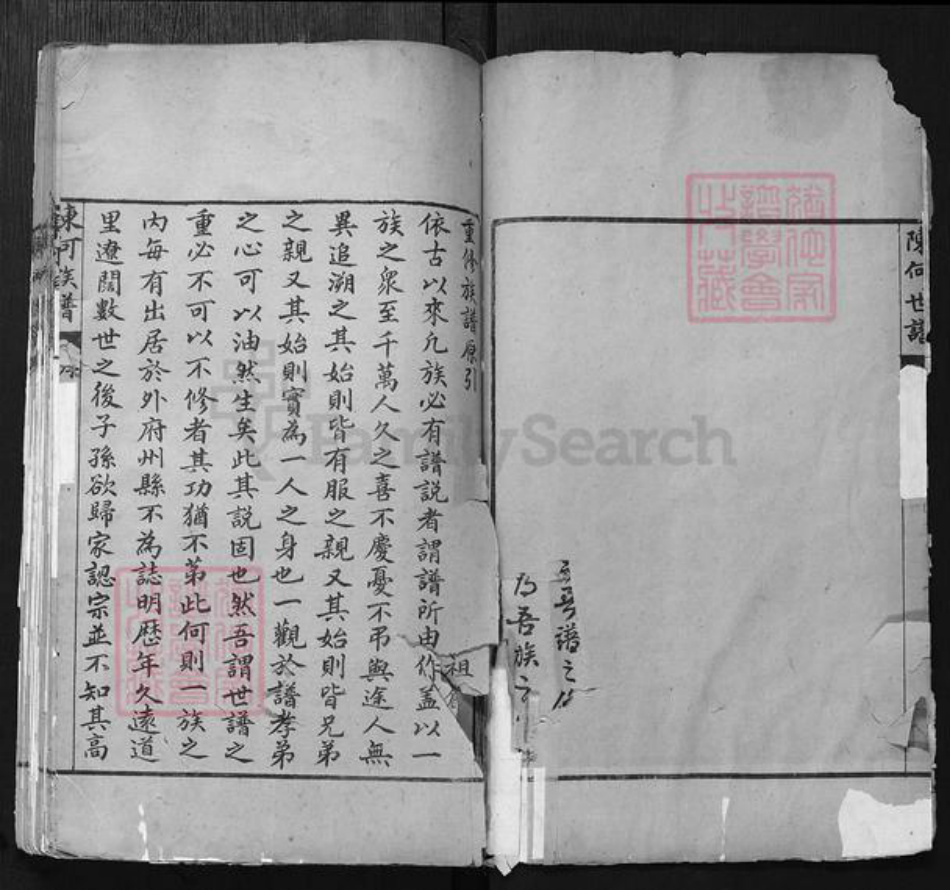 陳何世譜
譜之
吾族之
重修族譜原引
依古以來凢族必有譜説者謂譜所由作盖以一
族之衆至千萬人久之喜不慶憂不弔與途人無
異追溯之其始則皆有服之親又其始則皆兄弟
之親又其始則實為一人之身也一觀於譜孝弟
之心可以油然生矣此其説固也然吾謂世譜之
重必不可以不修者其功猶不第此何則一族之
內每有出居於外府州縣不為誌明歷年久遠道
里遼闊數世之後子孫欲歸家認宗並不知其高
祖
族譜
FamilySearch